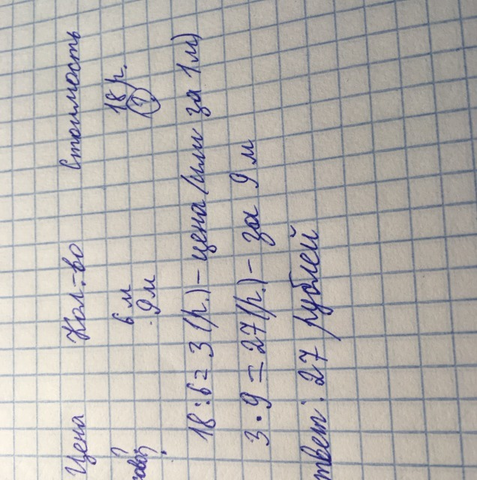 Цена Кол.-во Стоимость
? 6 м 18 р.
? 9 м ?
18 : 6 = 3 (р.) – цена (или за 1 м)
3 • 9 = 27 (р.) – за 9 м
твет: 27 рублей